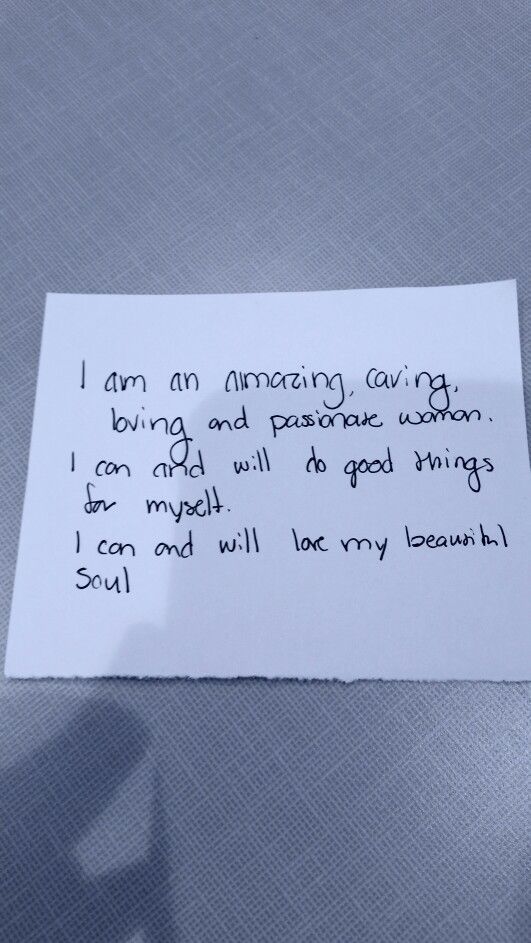 I am an amazing, caring,
loving and passionate woman.
I can and will do good things
for myself.
I can and will love my beautiful
soul